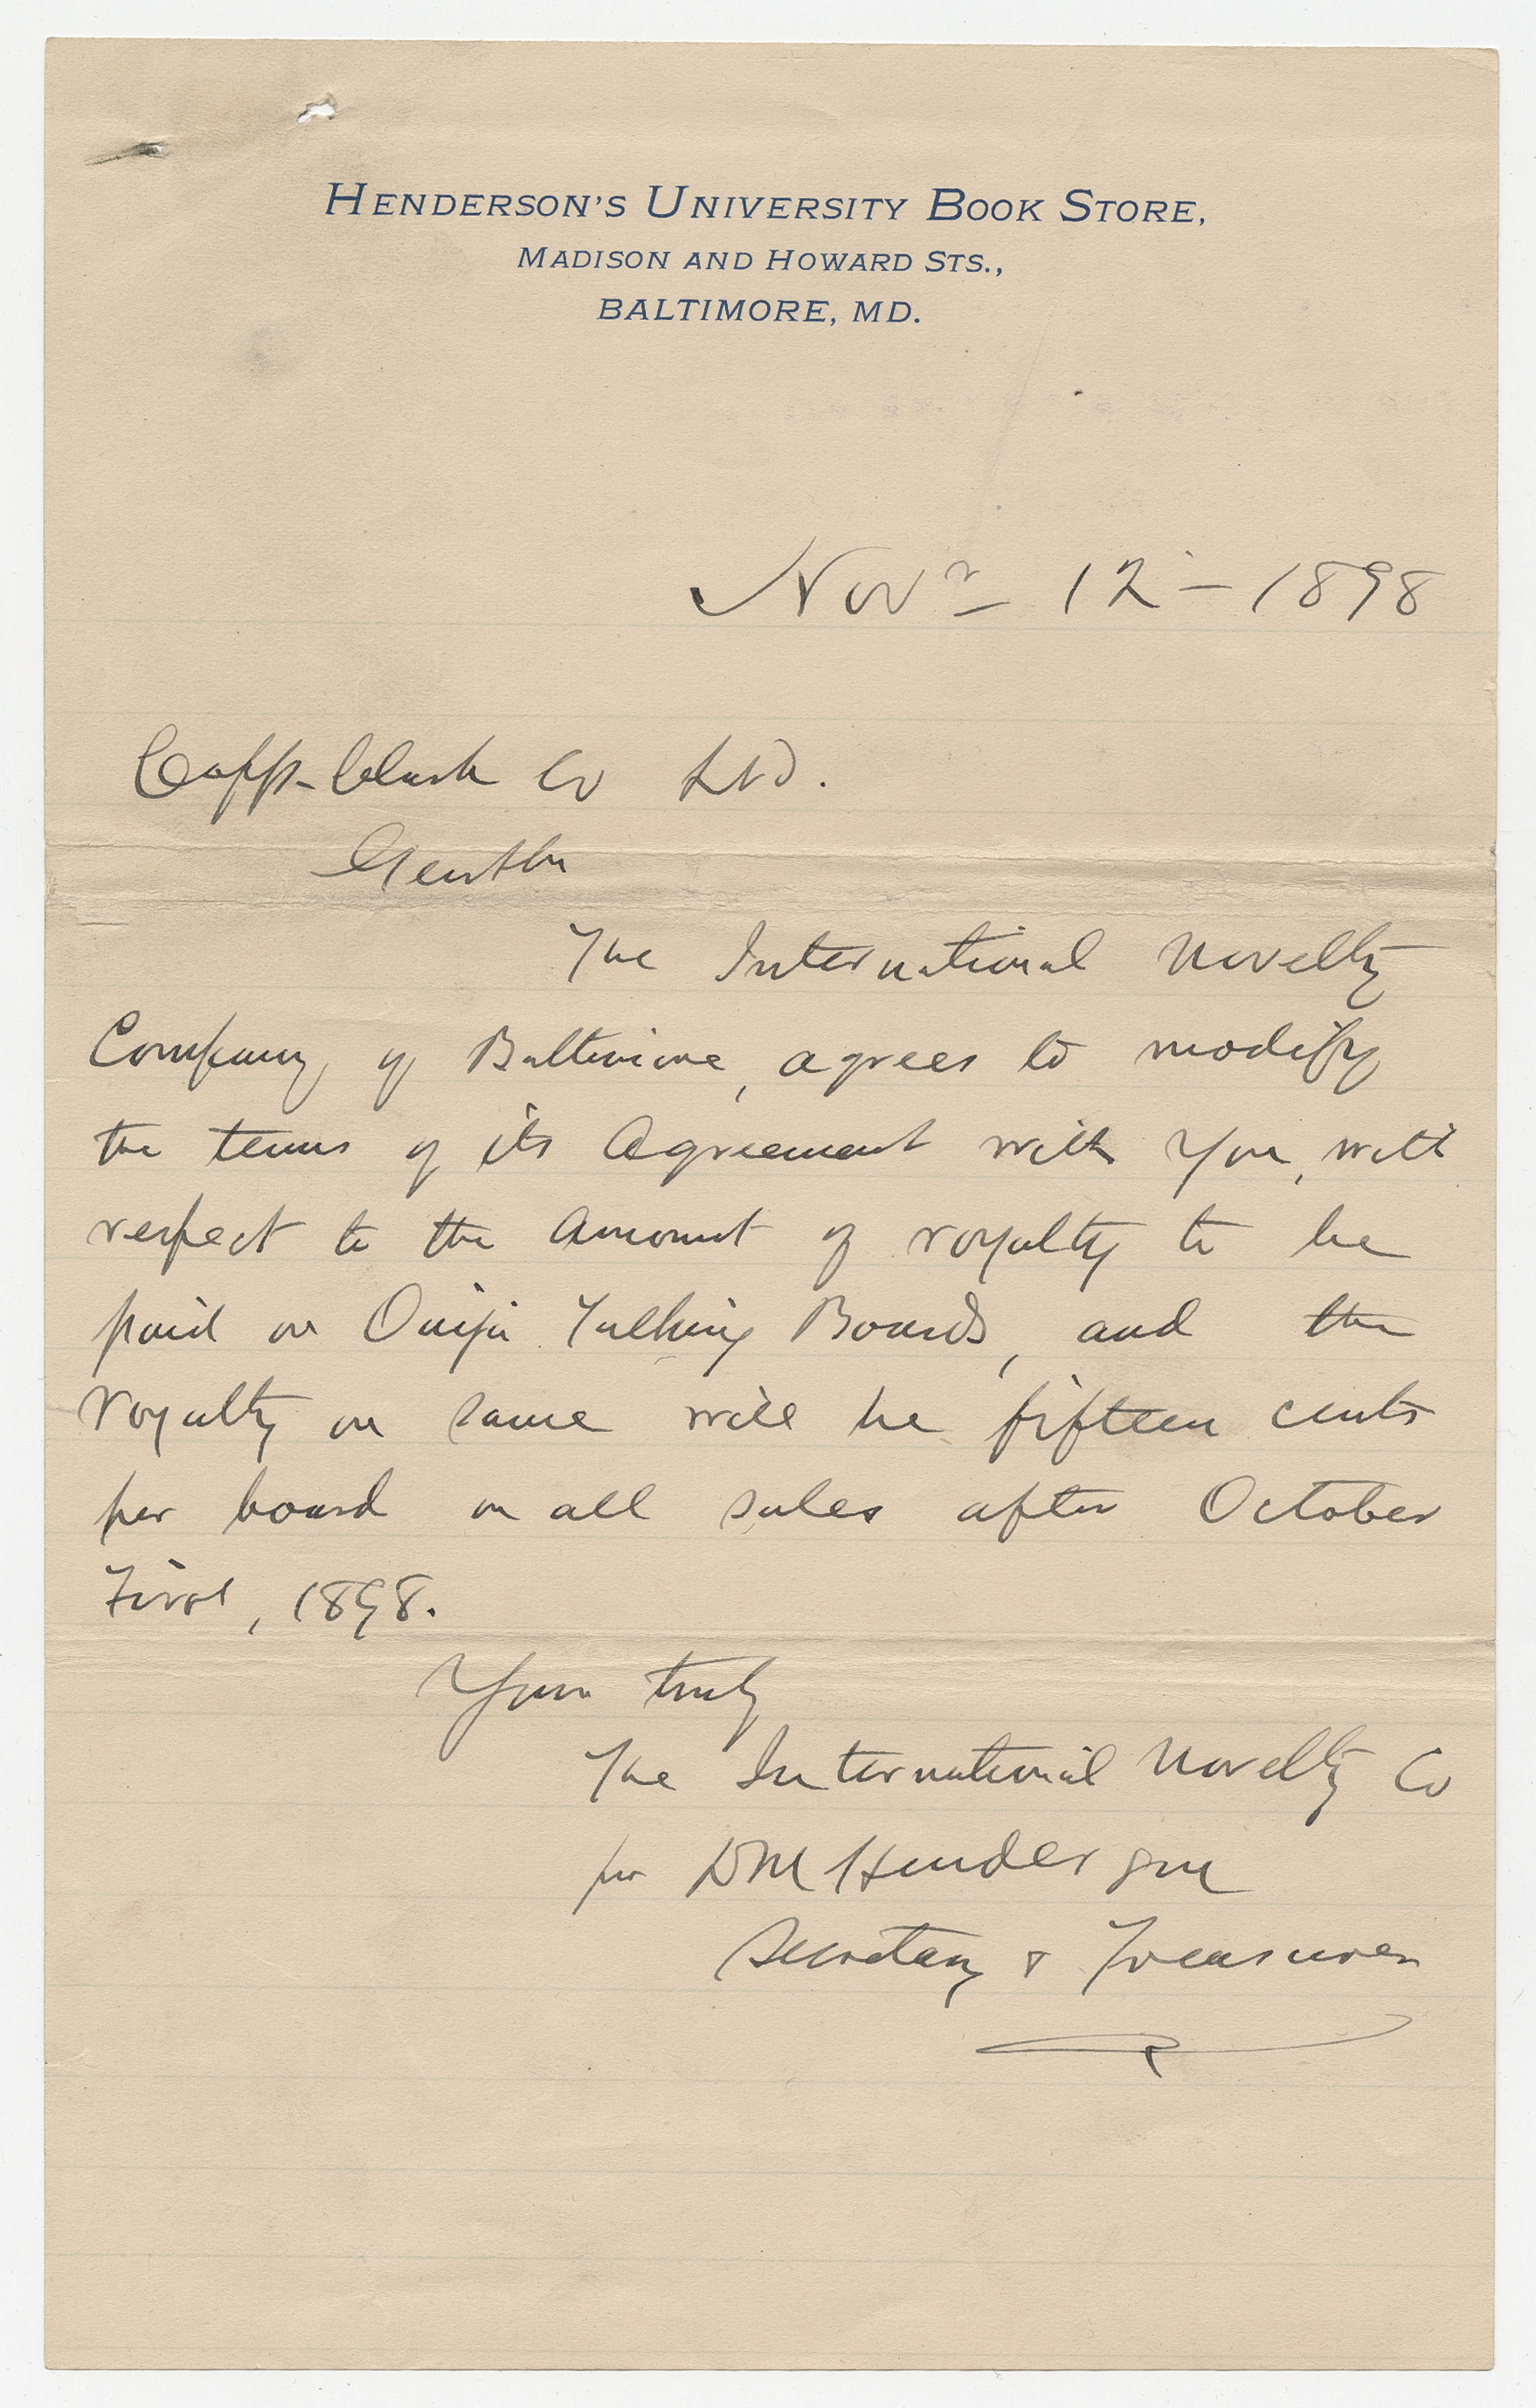 HENDERSON'S UNIVERSITY BOOK STORE,
MADISON AND HOWARD STS.,
BALTIMORE, MD.
Novr 12 - 1898
Copp-Clark Co Ltd.
Gentln
The International Novelty
Company of Baltimore, agrees to modify
the terms of its Agreement with you, with
respect to the Amount of royalty to be
paid on Ouija Talking Boards, and the
royalty on same will be fifteen cents
per board on all sales after October
First, 1898.
Yours truly
The International Novelty Co
per DM Henderson
Secretary & Treasurer